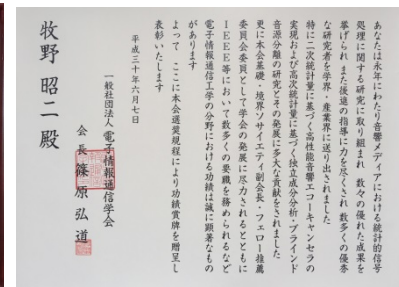 あなたは永年にわたり音響メディアにおける統計的信号
処理に関する研究に取り組まれ 数々の優れた成果を
挙げられ また後進の指導に力を尽くされ 数多くの優秀
な研究者を学界・産業界に送り出されました
特に二次統計量に基づく高性能音響エコーキャンセラの
実現および高次統計量に基づく独立成分分析・ブラインド
音源分離の研究とその発展に多大な貢献をされました
更に本会基礎・境界ソサイエティ副会長・フェロー推薦
委員会委員として学会の発展に尽力されるとともに
IEEE等において数多くの要職を務められるなど
電子情報通信工学の分野における功績は誠に顕著なもの
があります
よって ここに本会選奨規程により功績賞牌を贈呈し
表彰いたします
平成三十年六月七日
一般社団法人 電子情報通信学会
会長 篠原弘道
牧野昭二殿